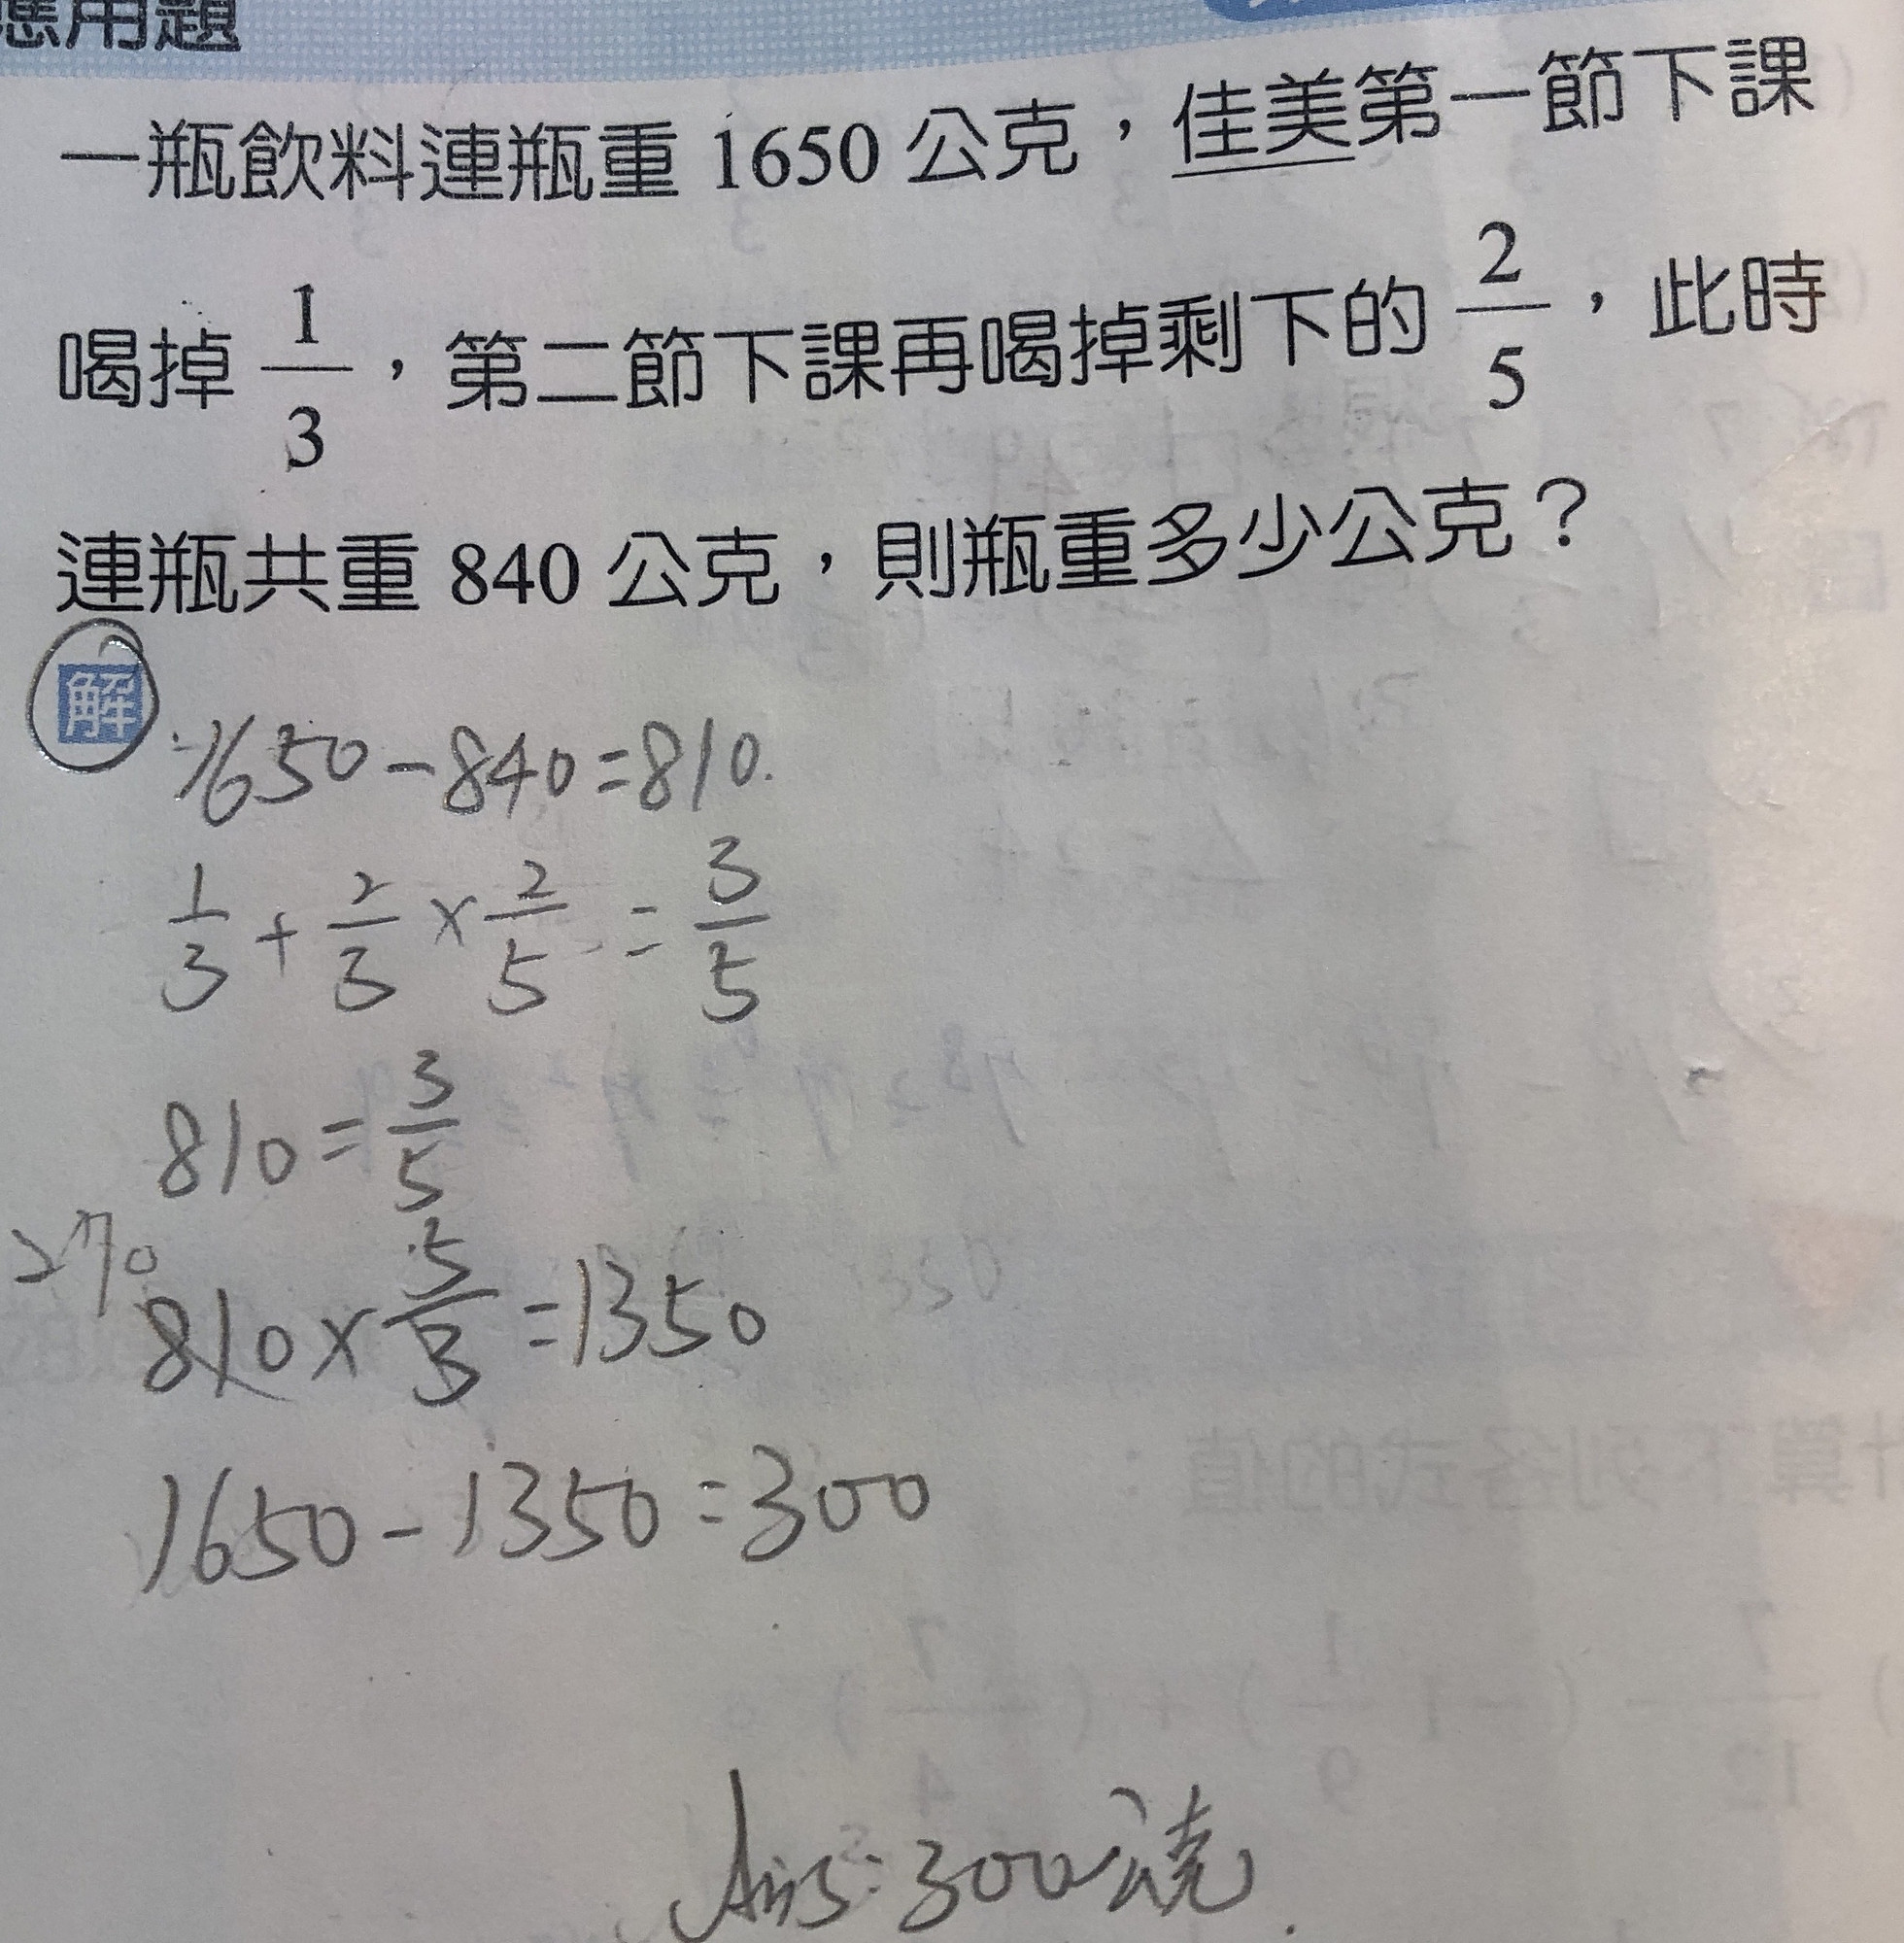 應用題
一瓶飲料連瓶重 1650 公克，佳美第一節下課
喝掉 1/3，第二節下課再喝掉剩下的 2/5，此時
連瓶共重 840 公克，則瓶重多少公克？
解
1650-840=810
1/3+2/3×2/5=3/5
810=3/5
270
810×5/3=1350
1650-1350=300
Ans:300公克